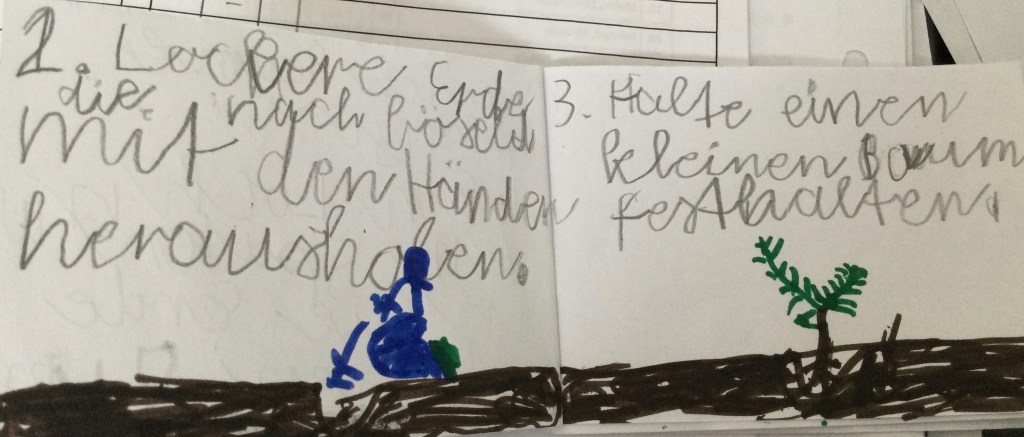 2. Lockere Erde
die nach böseld
mit den Händen
herausholen.
3. Halte einen
kleinen Baum
festhalten.